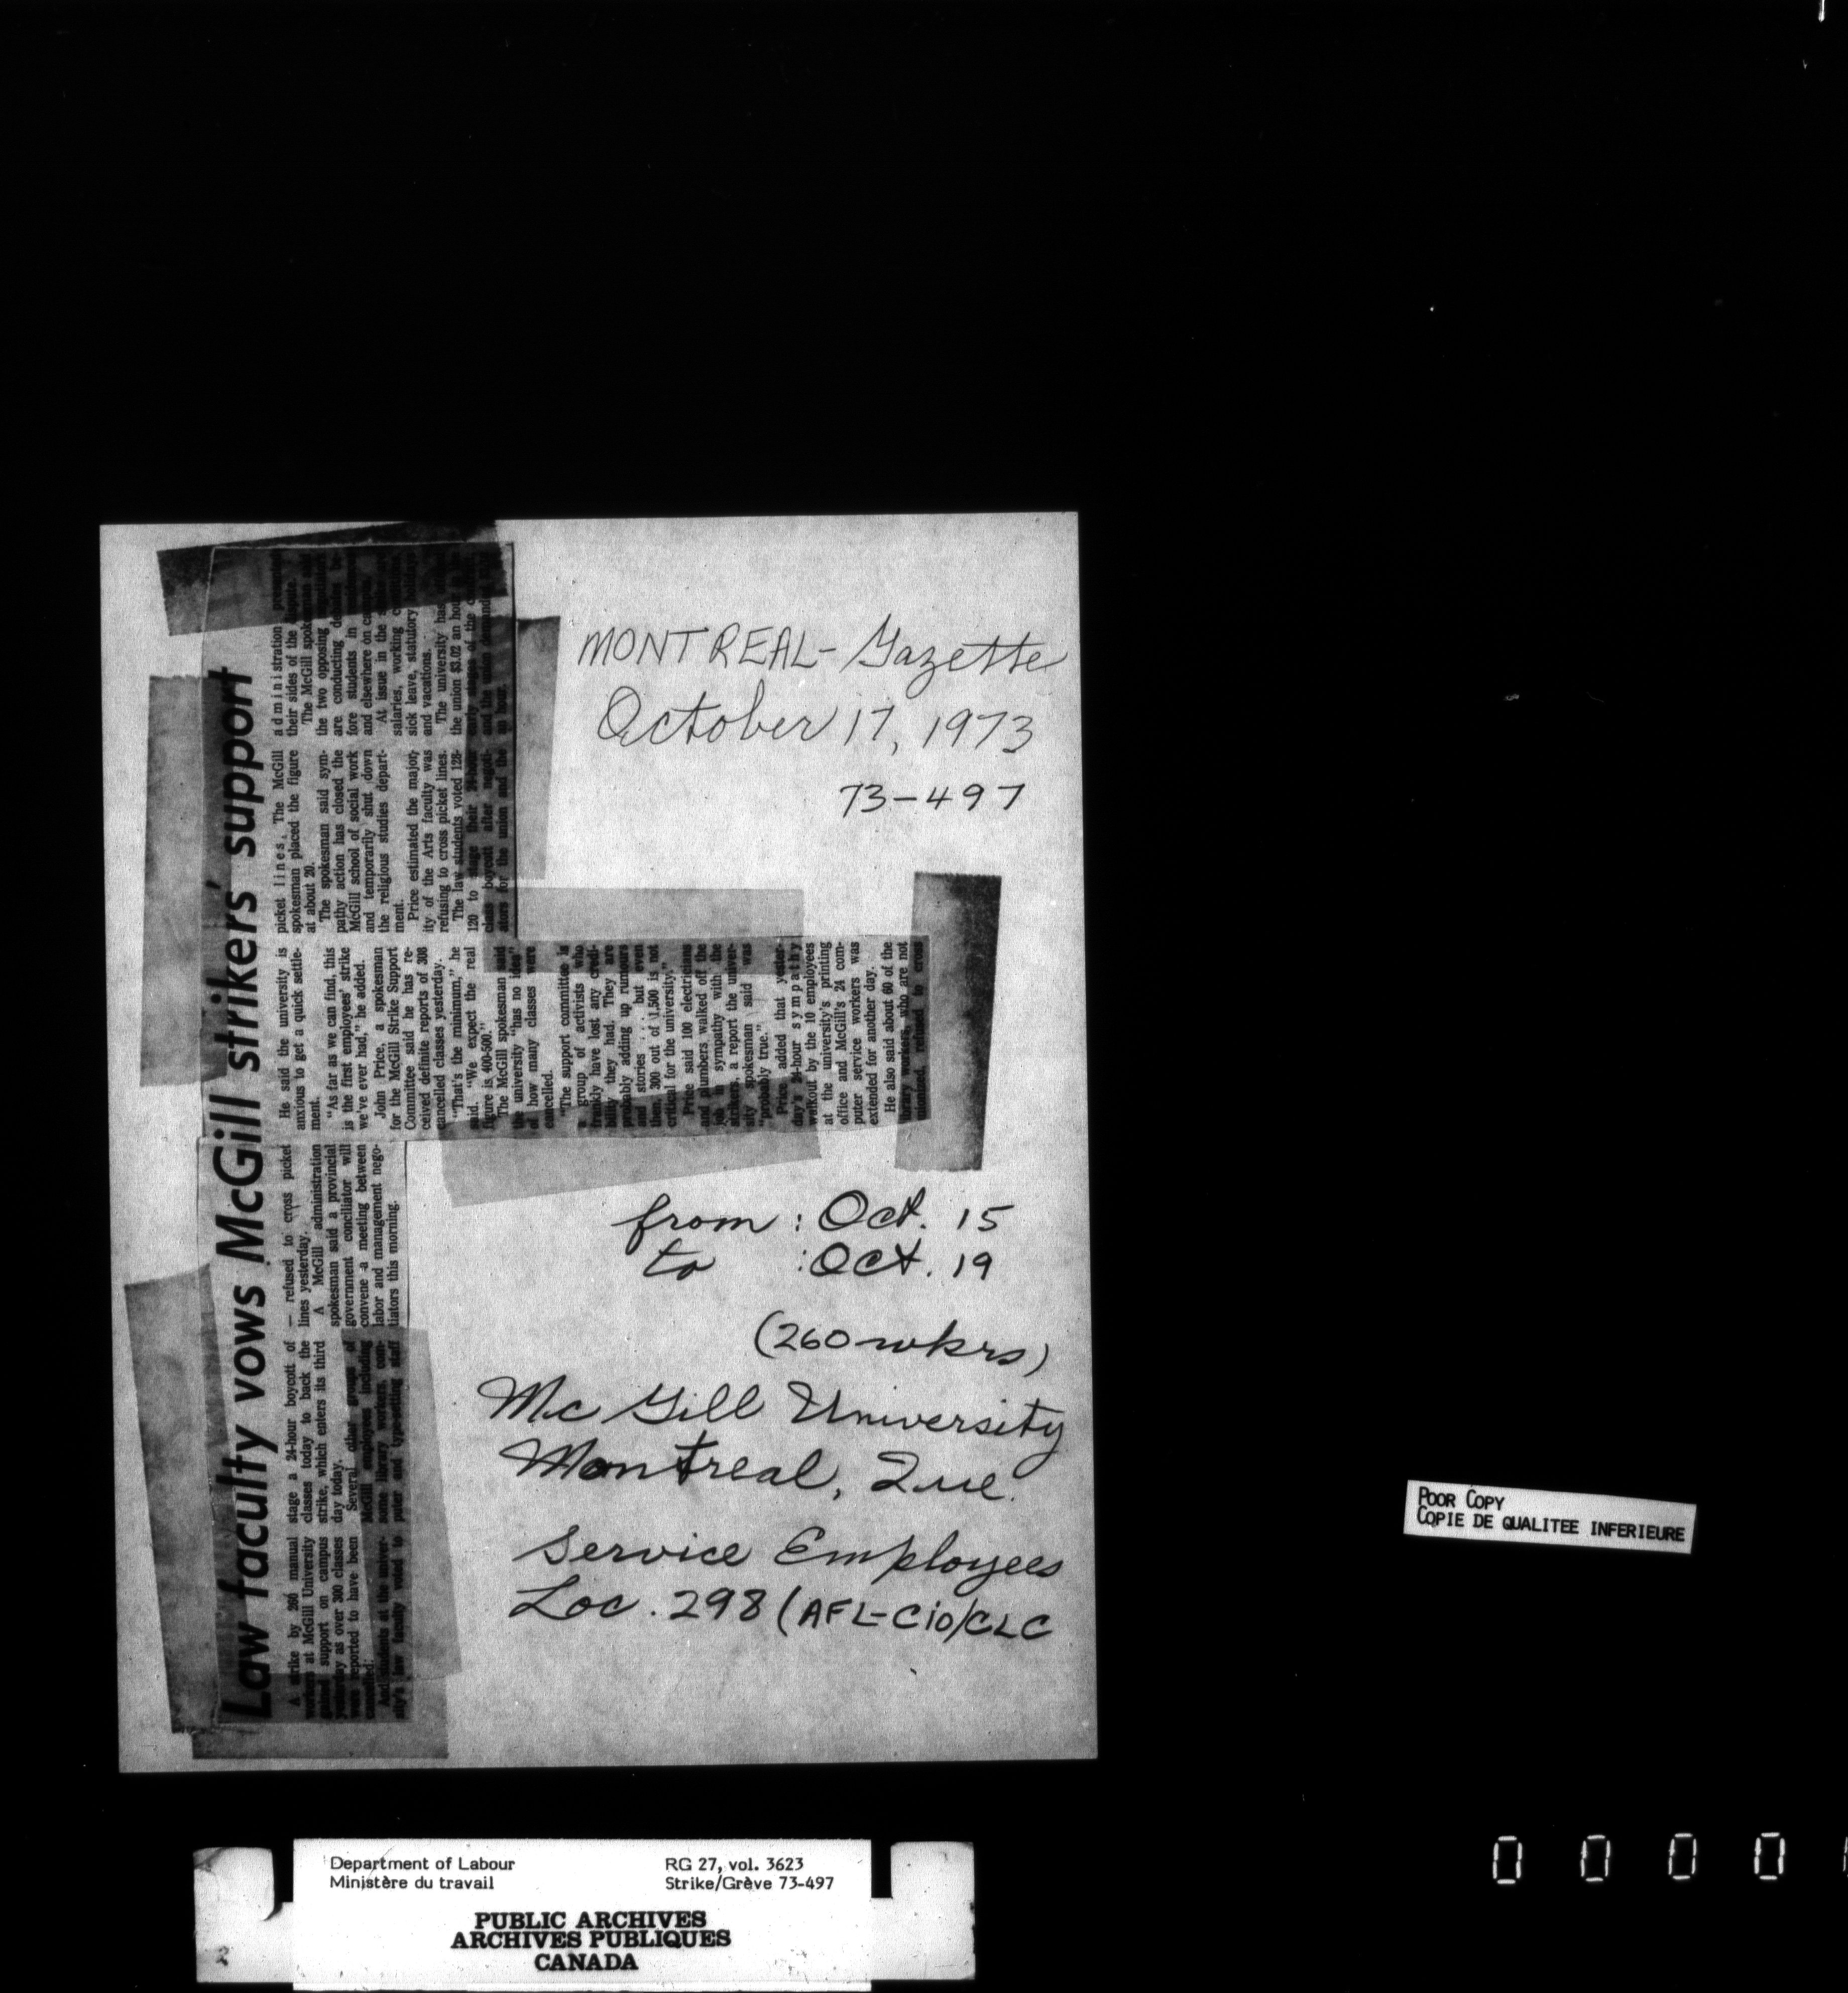 MONTREAL- Gazette
October 17, 1973
73-497
Law faculty vows McGill strikers' support
A strike by 260 manual
workers at McGill University
gained support on campus
yesterday as over 300 classes
were reported to have been
cancelled.
And students at the univer-
sity's law faculty voted to
stage a 24-hour boycott of
classes today to back the
strike, which enters its third
day today.
Several other groups of
McGill employees including
some library workers, com-
puter and type-setting staff
— refused to cross picket
lines yesterday.
A McGill administration
spokesman said a provincial
government conciliator will
convene a meeting between
labor and management nego-
tiators this morning.
He said the university is
anxious to get a quick settle-
ment.
"As far as we can find, this
is the first employees' strike
we've ever had," he added.
John Price, a spokesman
for the McGill Strike Support
Committee said he has re-
ceived definite reports of 308
cancelled classes yesterday.
"That's the minimum," he
said. "We expect the real
figure is 400-500."
The McGill spokesman said
the university "has no idea"
of how many classes were
cancelled.
"The support committee is
a group of activists who
frankly have lost any credi-
bility they had. They are
probably adding up rumours
and stories . . . but even
then, 300 out of 1,500 is not
critical for the university."
Price said 100 electricians
and plumbers walked off the
job in sympathy with the
strikers, a report the univer-
sity spokesman said was
"probably true."
Price added that yester-
day's 24-hour sympathy
walkout by the 10 employees
at the university's printing
office and McGill's 24 com-
puter service workers was
extended for another day.
He also said about 60 of the
library workers, who are not
unionized, refused to cross
picket lines. The McGill
spokesman placed the figure
at about 20.
The spokesman said sym-
pathy action has closed the
McGill school of social work
and temporarily shut down
the religious studies depart-
ment.
Price estimated the major-
ity of the Arts faculty was
refusing to cross picket lines.
The law students voted 128-
120 to stage their 24-hour
class boycott after negoti-
ators for the union and the
administration
their sides of the
The McGill spokesman
the two opposing
are conducting
fore students in
and elsewhere on
At issue in the
salaries, working
sick leave, statutory
and vacations.
The university has
the union $3.02 an hour
early stages of the
and the union
an hour.
from : Oct. 15
to : Oct. 19
(260 wkrs)
Mc Gill University
Montreal, Que.
Service Employees
Loc. 298 (AFL-CIO/CLC
POOR COPY
COPIE DE QUALITEE INFERIEURE
Department of Labour
Ministère du travail
RG 27, vol. 3623
Strike/Grève 73-497
PUBLIC ARCHIVES
ARCHIVES PUBLIQUES
CANADA
2
0 0 0 0